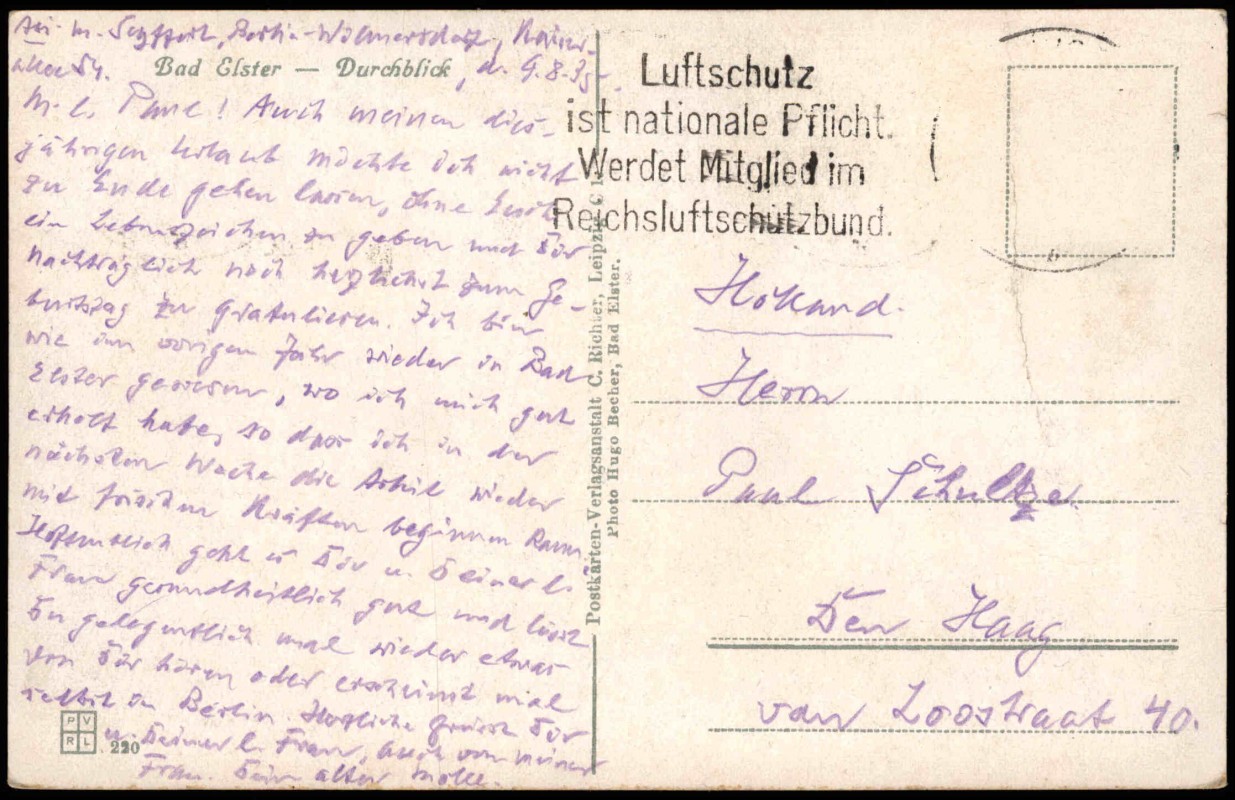 Bad Elster — Durchblick
bei m. Seyffert, Berlin-Wilmersdorf, Kaiser-
allee 54. , d. 9.8.35
M. l. Paul! Auch meinen dies-
jährigen Urlaub möchte ich nicht
zu Ende gehen lassen, ohne Euch
ein Lebenszeichen zu geben und Dir
nachträglich noch herzlichst zum Ge-
burtstag zu gratulieren. Ich bin
wie im vorigen Jahr wieder in Bad
Elster gewesen, wo ich mich gut
erholt habe, so dass ich in der
nächsten Woche die Arbeit wieder
mit frischen Kräften beginnen kann.
Hoffentlich geht es Dir u. Deiner l.
Frau gesundheitlich gut und lässt
Du gelegentlich mal wieder etwas
von Dir hören oder erscheinst mal
selbst in Berlin. Herzliche Grüsse Dir
u. Deiner l. Frau, auch von meiner
Frau. Dein alter
P V
R L
220
Postkarten-Verlagsanstalt C. Richter, Leipzig C 1.
Photo Hugo Becher, Bad Elster.
Luftschutz
ist nationale Pflicht.
Werdet Mitglied im
Reichsluftschutzbund.
Holland.
Herrn
Paul Schultze
Den Haag
van Loostraat 40.